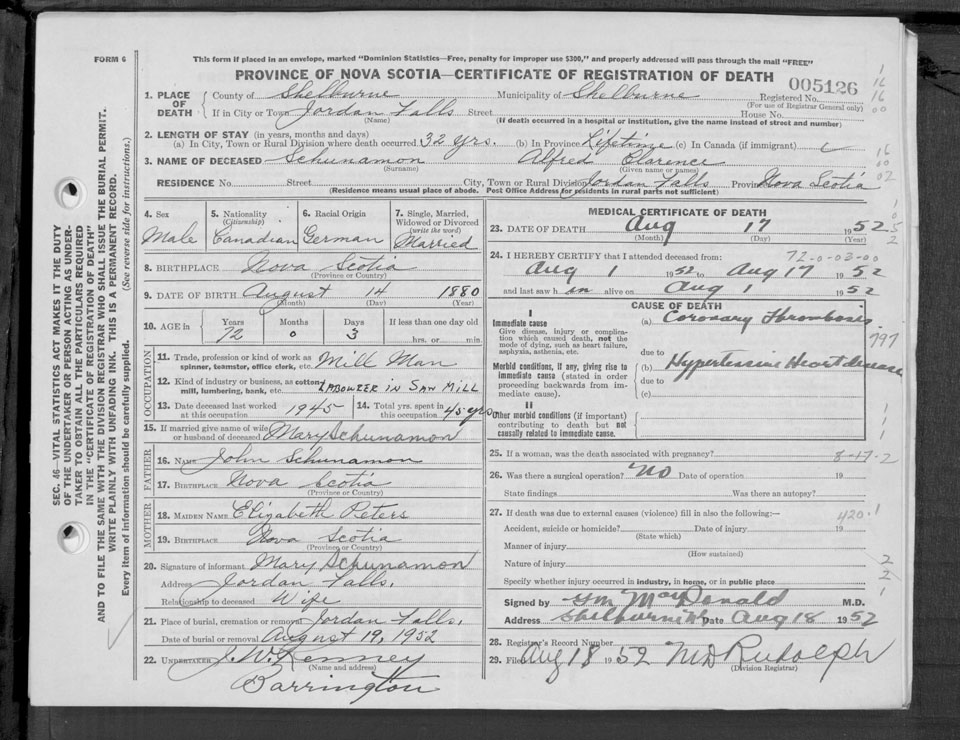 FORM 6
This form if placed in an envelope, marked "Dominion Statistics—Free, penalty for improper use $300," and properly addressed will pass through the mail "FREE"
PROVINCE OF NOVA SCOTIA—CERTIFICATE OF REGISTRATION OF DEATH
005126
1. PLACE OF DEATH County of Shelburne Municipality of Shelburne Registered No.
(For use of Registrar General only)
If in City or Town Jordan Falls Street House No.
(Name) (If death occurred in a hospital or institution, give the name instead of street and number)
2. LENGTH OF STAY (in years, months and days)
(a) In City, Town or Rural Division where death occurred 32 yrs. (b) In Province Lifetime (c) In Canada (if immigrant)
3. NAME OF DECEASED Schunamon Alfred Clarence
(Surname) (Given name or names)
RESIDENCE No. Street City, Town or Rural Division Jordan Falls Province Nova Scotia
(Residence means usual place of abode. Post Office Address for residents in rural parts not sufficient)
4. Sex Male
5. Nationality (Citizenship) Canadian
6. Racial Origin German
7. Single, Married, Widowed or Divorced (write the word) Married
8. BIRTHPLACE Nova Scotia
(Province or Country)
9. DATE OF BIRTH August 14 1880
(Month) (Day) (Year)
10. AGE in Years Months Days If less than one day old
72 0 3 hrs. or min.
OCCUPATION
11. Trade, profession or kind of work as spinner, teamster, office clerk, etc. Mill Man
12. Kind of industry or business, as cotton mill, lumbering, bank, etc. LABOURER IN SAW MILL
13. Date deceased last worked at this occupation 1945
14. Total yrs. spent in this occupation 45 yrs
15. If married give name of wife or husband of deceased Mary Schunamon
FATHER
16. NAME John Schunamon
17. BIRTHPLACE Nova Scotia
(Province or Country)
MOTHER
18. MAIDEN NAME Elizabeth Peters
19. BIRTHPLACE Nova Scotia
(Province or Country)
20. Signature of informant Mary Schunamon
Address Jordan Falls,
Relationship to deceased Wife
21. Place of burial, cremation or removal Jordan Falls,
Date of burial or removal August 19, 1952
22. UNDERTAKER J. W. Kenney
(Name and address)
Barrington
MEDICAL CERTIFICATE OF DEATH
23. DATE OF DEATH Aug 17 1952
(Month) (Day) (Year)
24. I HEREBY CERTIFY that I attended deceased from: 72-0-03-00
Aug 1 1952 to Aug 17 1952
and last saw h im alive on Aug 1 1952
CAUSE OF DEATH
I
Immediate cause
Give disease, injury or complication which caused death, not the mode of dying, such as heart failure, asphyxia, asthenia, etc.
(a) Coronary Thrombosis
due to
Morbid conditions, if any, giving rise to immediate cause (stated in order proceeding backwards from immediate cause).
(b) Hypertensive Heart disease
due to
(c)
II
Other morbid conditions (if important) contributing to death but not causally related to immediate cause.
25. If a woman, was the death associated with pregnancy? 8-17-2
26. Was there a surgical operation? NO Date of operation 19
State findings Was there an autopsy?
27. If death was due to external causes (violence) fill in also the following:— 420.1
Accident, suicide or homicide? Date of injury 19
(State which)
Manner of injury
(How sustained)
Nature of injury
Specify whether injury occurred in industry, in home, or in public place
Signed by Gm MacDonald M.D.
Address Shelburne NS Date Aug 18 1952
28. Registrar's Record Number
29. Filed Aug 18 1952 MD Rudolph
(Division Registrar)
SEC. 46—VITAL STATISTICS ACT MAKES IT THE DUTY
OF THE UNDERTAKER OR PERSON ACTING AS UNDER-
TAKER TO OBTAIN ALL THE PARTICULARS REQUIRED
IN THE "CERTIFICATE OF REGISTRATION OF DEATH"
AND TO FILE THE SAME WITH THE DIVISION REGISTRAR WHO SHALL ISSUE THE BURIAL PERMIT.
WRITE PLAINLY WITH UNFADING INK. THIS IS A PERMANENT RECORD.
Every item of information should be carefully supplied. (See reverse side for instructions.)